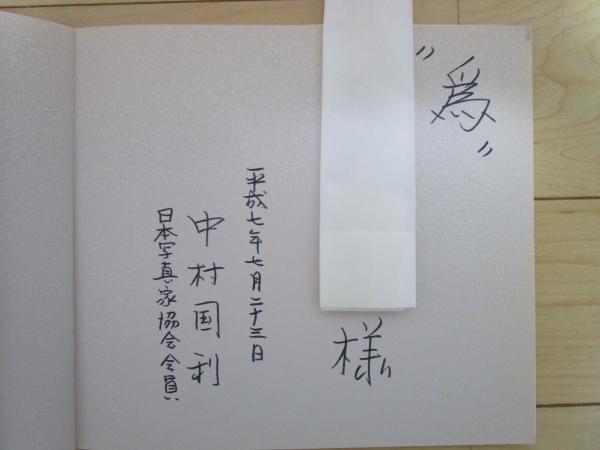 "為"
様
平成七年七月二十三日
中村国利
日本写真家協会会員